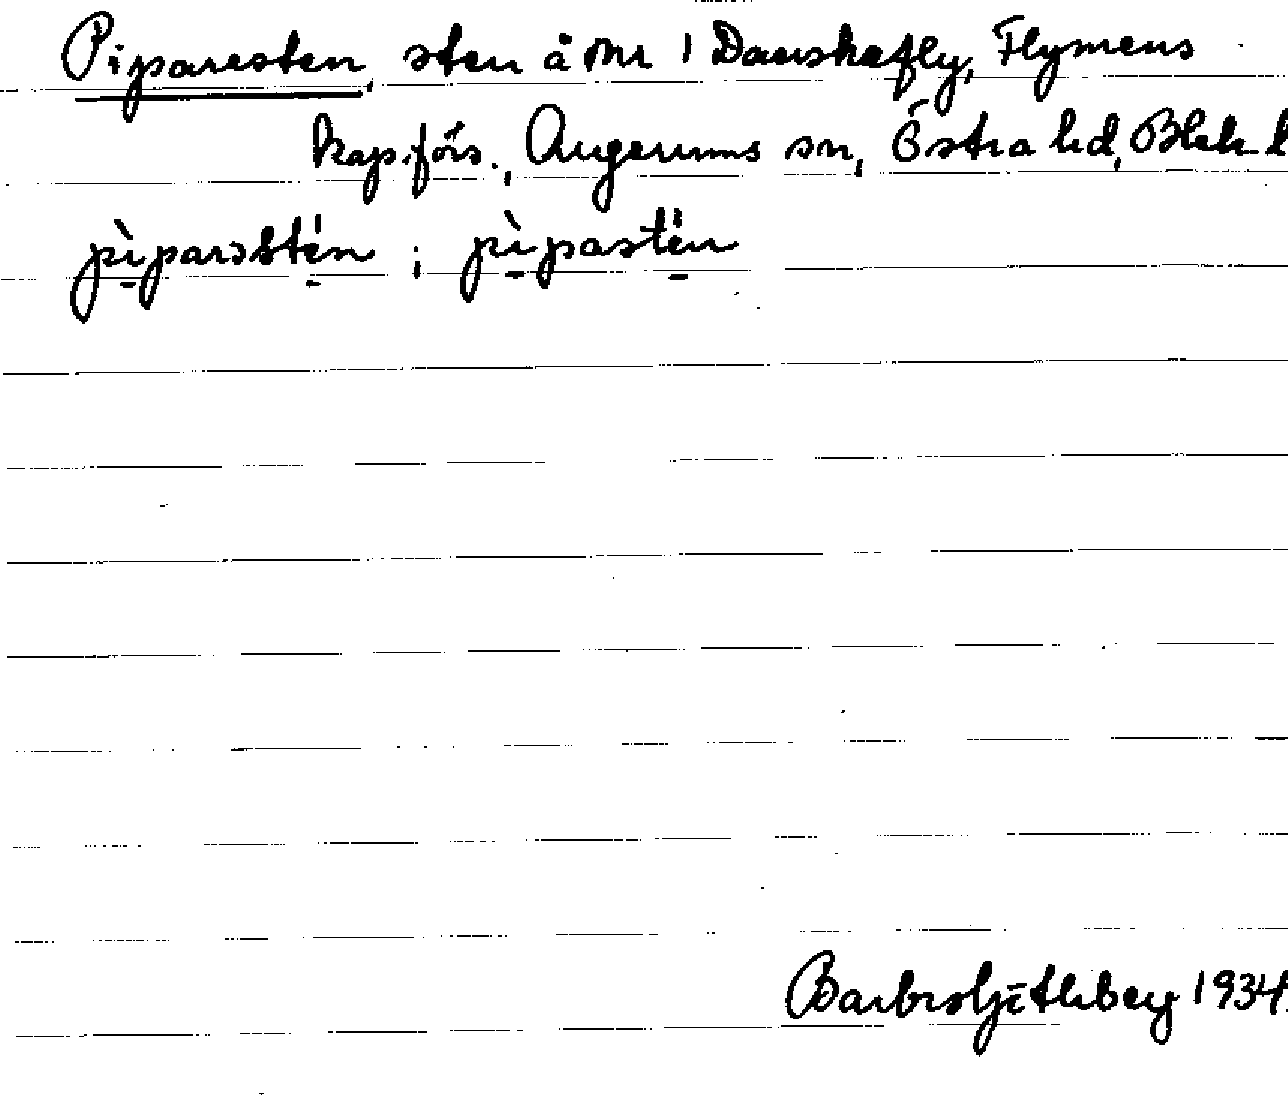 Piparesten, sten å Nr 1 Danskafly, Flymens
kap.förs., Augerums sn, Östra hd, Blek. l
pìparəstén ; pìpastën
Barbro 1934.